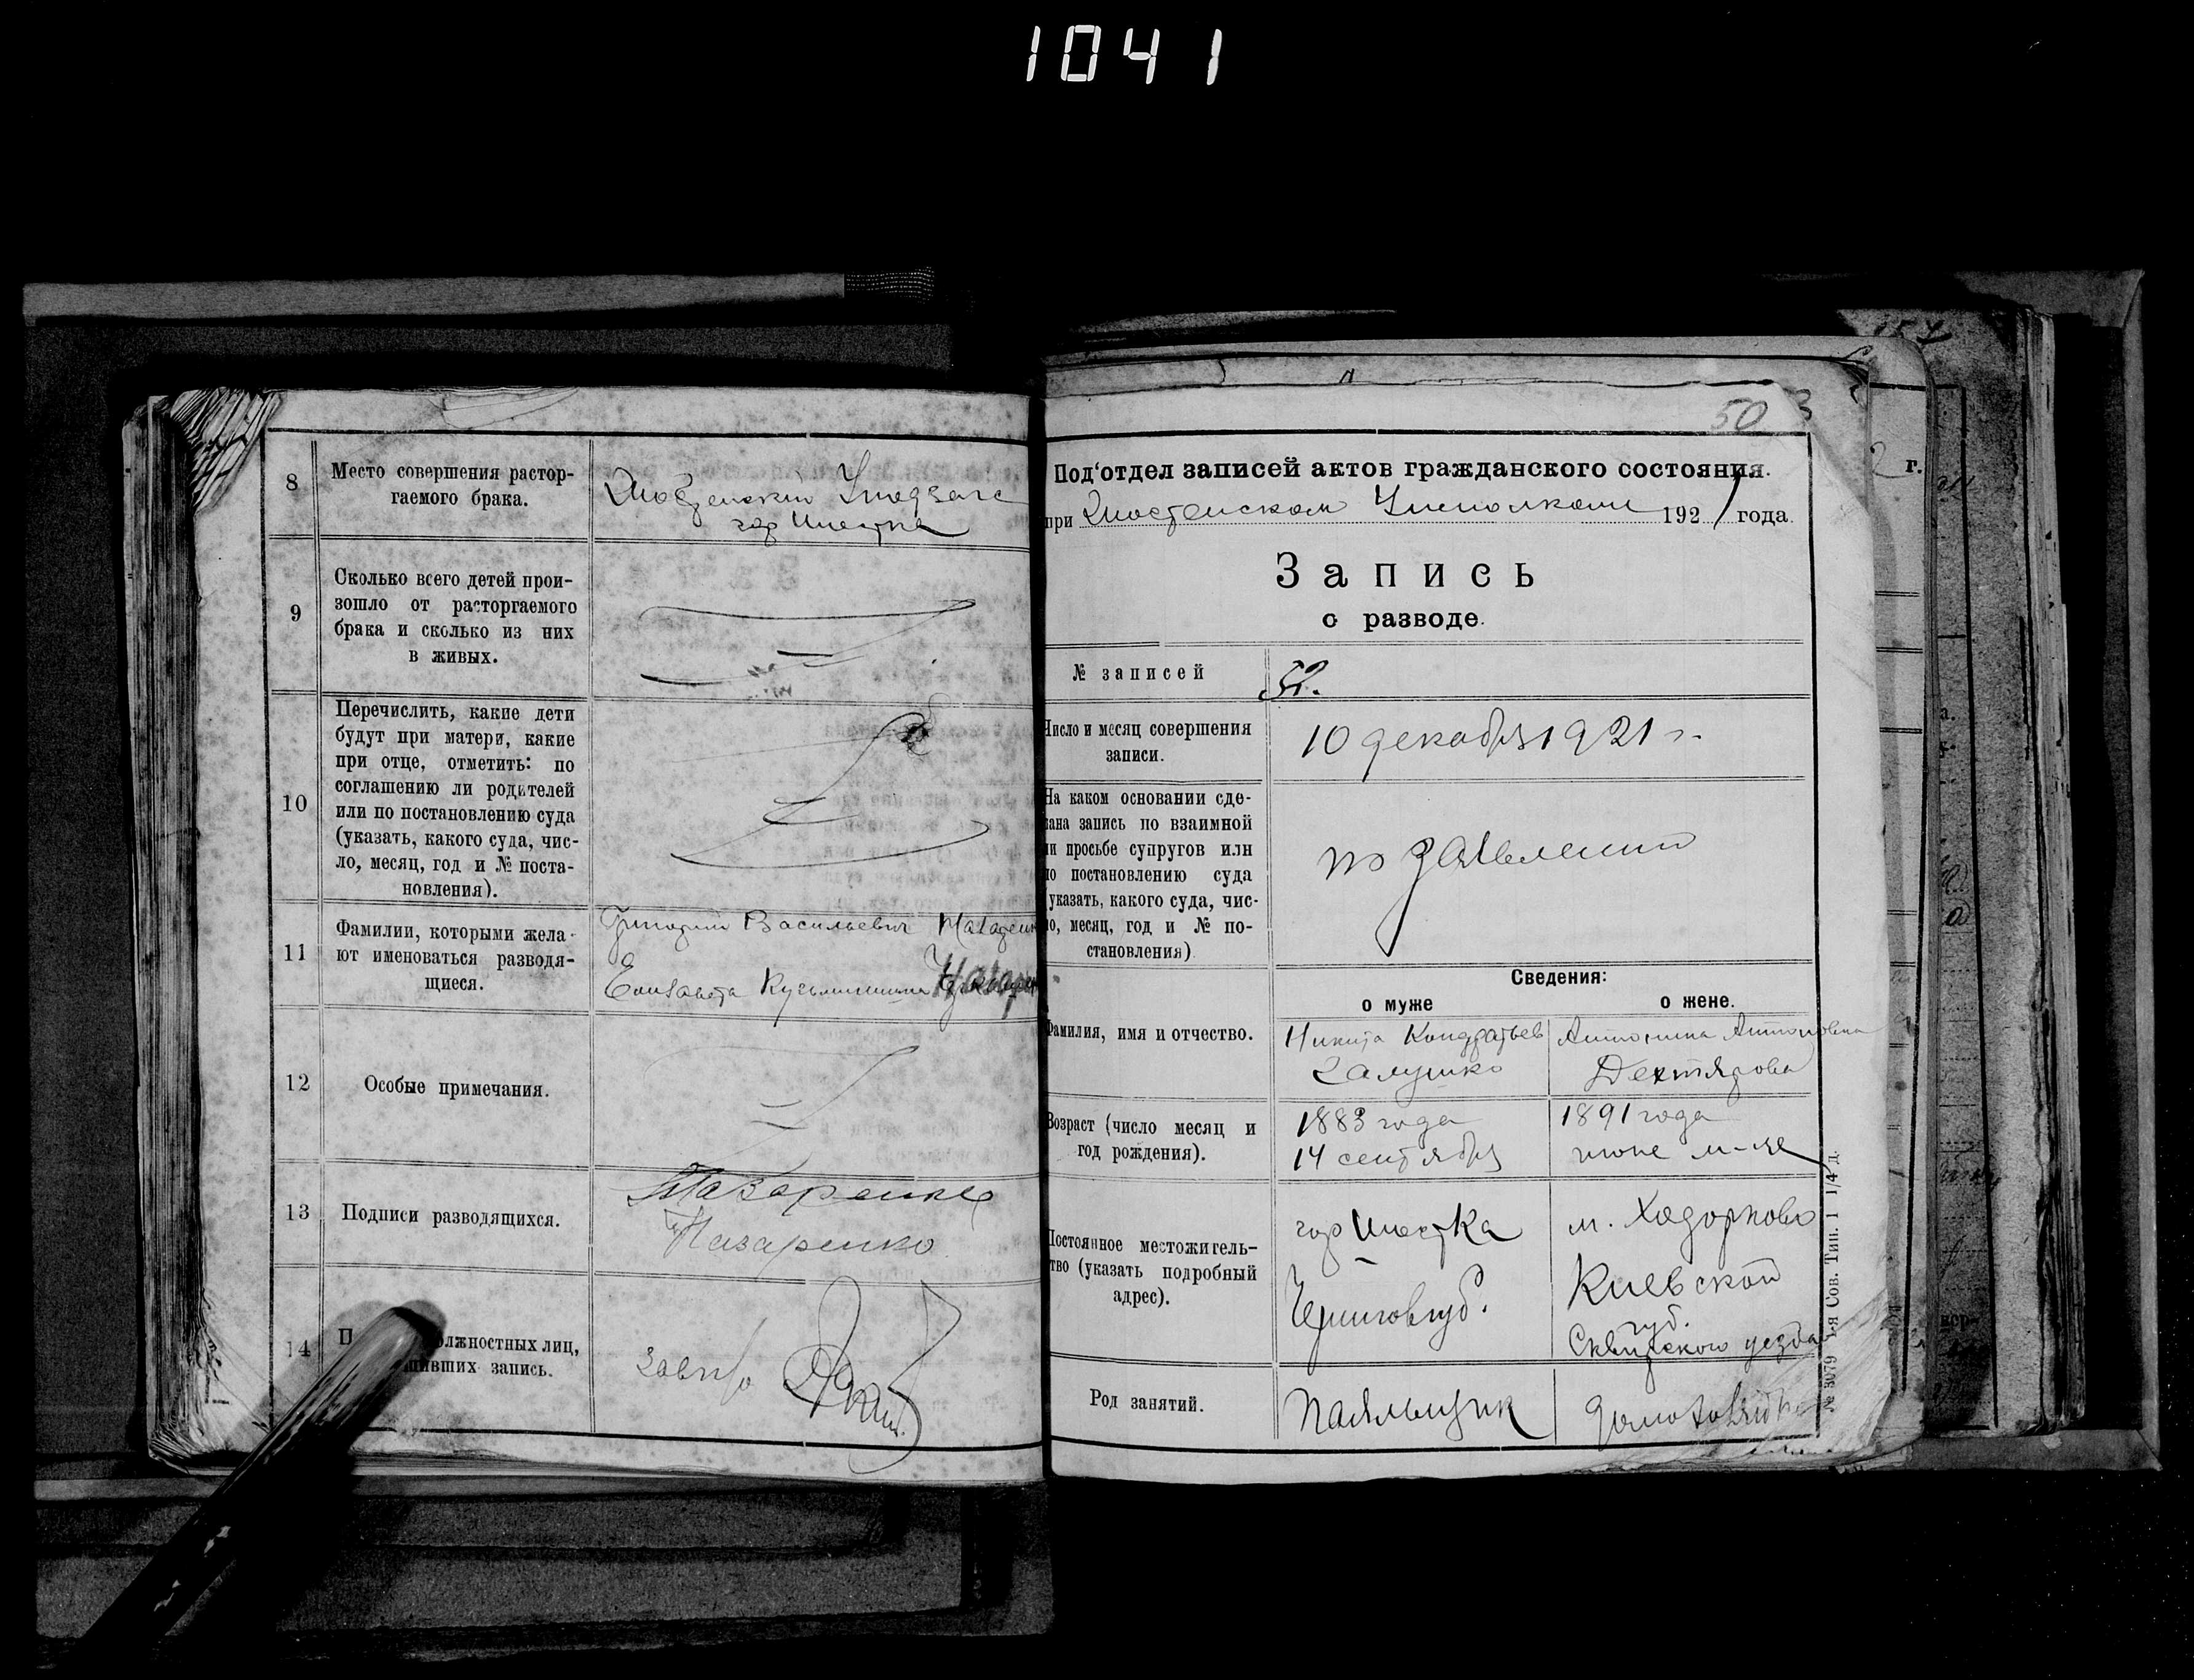 1041
8
Место совершения растор-
гаемого брака.
гор Шостка
9
Сколько всего детей прои-
зошло от расторгаемого
брака и сколько из них
в живых.
10
Перечислить, какие дети
будут при матери, какие
при отце, отметить: по
соглашению ли родителей
или по постановлению суда
(указать, какого суда, чис-
ло, месяц, год и № поста-
новления).
11
Фамилии, которыми жела-
ют именоваться разводя-
щиеся.
Григорий Васильевич
Елизавета Кузьминична
12
Особые примечания.
13
Подписи разводящихся.
Назаренко
Назаренко
14
должностных лиц,
запись.
50
Под‘отдел записей актов гражданского состояния.
при Шостенском Исполкоме 1921 года.
Запись
о разводе.
№ записей
52.
Число и месяц совершения
записи.
10 декабря 1921 г.
На каком основании сде-
лана запись по взаимной
ли просьбе супругов или
по постановлению суда
указать, какого суда, чис-
ло, месяц, год и № по-
становления)
по заявлению
Сведения:
о муже
о жене.
Фамилия, имя и отчество.
Никита Кондратьев
Галушко
Антонина Антоновна
Дехтярова
Возраст (число месяц и
год рождения).
1883 года
14 сентября
1891 года
июне м-це
Постоянное местожитель-
тво (указать подробный
адрес).
гор Шостка
Чернигов губ.
м. Ходорково
Киевской
губ.
Сквирского уезда
Род занятий.
паяльщик
№ 3079 1-я Сов. Тип. 1 1/4 д.
г.